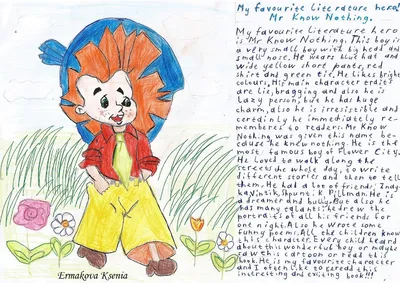 My favourite literature hero!
Mr Know Nothing.
My favourite literature hero
is Mr Know Nothing. This boy is
a very small boy with big head and
small nose. He wears blue hat and
wide yellow short pants, red
shirt and green tie. He likes bright
colours. His main character traits
are lie, bragging and also he is
lazy person, but he has huge
charm, also he is irresistible and
certainly he immediately re-
memberes to readers. Mr Know
Nothing was given this name be-
cause he knew nothing. He is the
most famous boy of Flower City.
He loved to walk along the
streets the whole day, to write
different stories and then to tell
them. He had a lot of friends:
Vintik, Shpuntik, Pillman. He is
a dreamer and bully. But also he
has many talants: he drew the
portraits of all his friends for
one night. Also he wrote some
funny poems. All the children know
this character. Every child heard
about this wonderful boy or maybe
saw this cartoon or read this
book. He is my favourite character
and I often like to reread this
interesting and exciting book!!!
Ermakova Ksenia